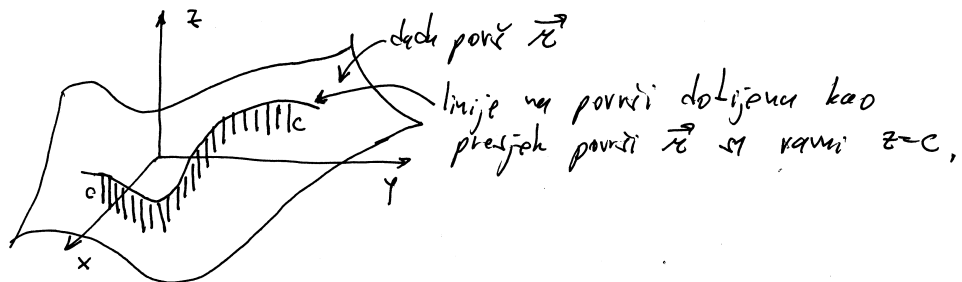 z
data površ r⃗
linije na površi dobijena kao
presjek površi r⃗ sa ravni z=c.
c
c
y
x